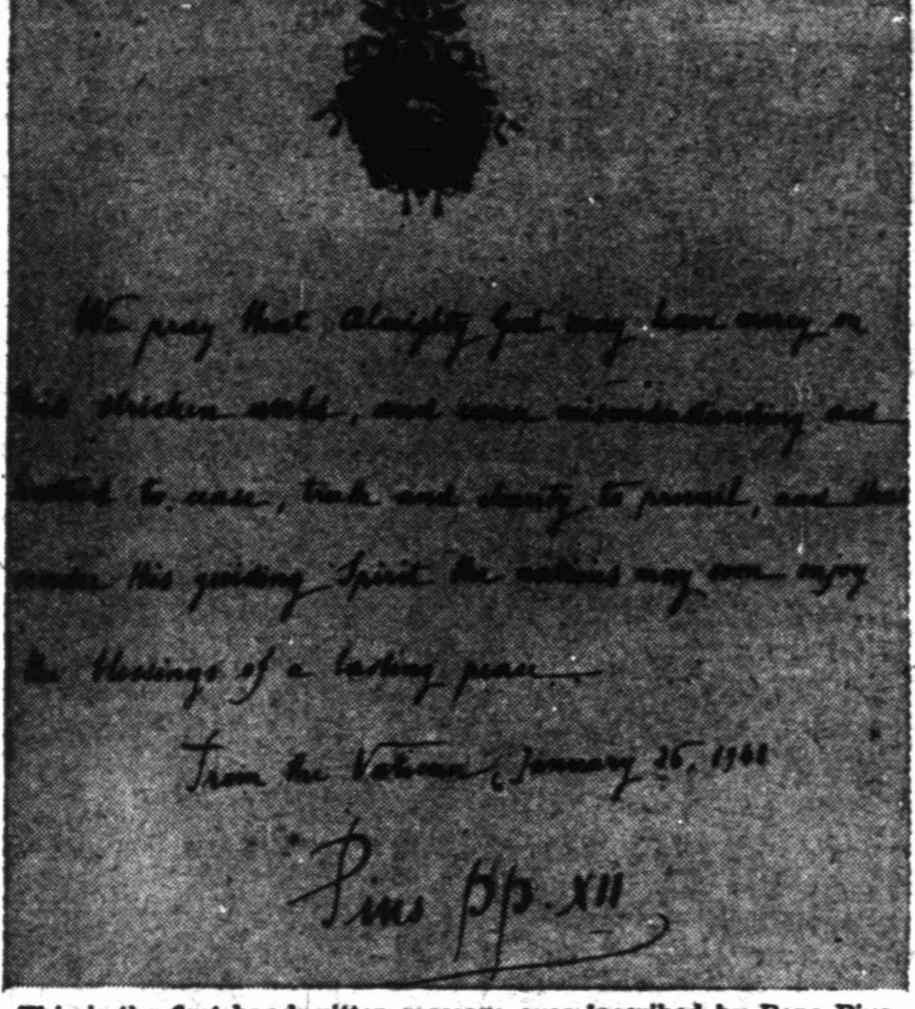 We pray that Almighty God may have mercy on
this stricken world, and cause misunderstanding and
hatred to cease, truth and charity to prevail, and that
under His guiding Spirit the nations may soon enjoy
the blessings of a lasting peace.
From the Vatican, January 26, 1941
Pius pp. XII
This is the first handwritten message ever inscribed by Pope Pius